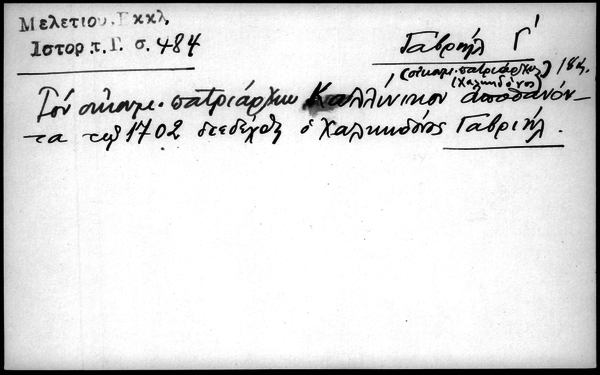 Μελετίου, Εκκλ.
Ιστορ. τ. Γ. σ. 484
Γαβριήλ Γ΄
(οικουμ. πατριάρχης) 18α.
(Χαλκηδόνος)
Τον οικουμ. πατριάρχην Καλλίνικον αποθανόν-
τα τω 1702 διεδέχθη ο Χαλκηδόνος Γαβριήλ.